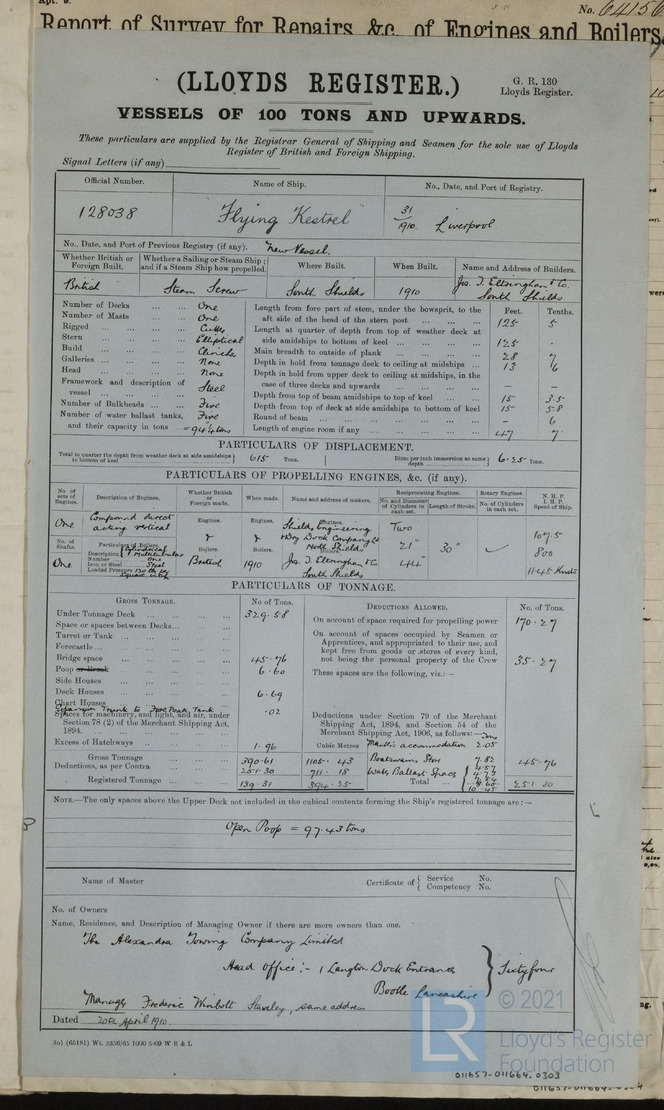 Rpt. 9.
No. 64156
Report of Survey for Repairs, &c., of Engines and Boilers.
(LLOYDS REGISTER.)
G. R. 130
Lloyds Register.
VESSELS OF 100 TONS AND UPWARDS.
These particulars are supplied by the Registrar General of Shipping and Seamen for the sole use of Lloyds
Register of British and Foreign Shipping.
Signal Letters (if any)
Official Number. Name of Ship. No., Date, and Port of Registry.
128038 "Flying Kestrel" 31/1910. Liverpool
No., Date, and Port of Previous Registry (if any). New Vessel.
Whether British or Foreign Built. Whether a Sailing or Steam Ship; and if a Steam Ship how propelled. Where Built. When Built. Name and Address of Builders.
British Steam Screw South Shields 1910 Jos. T. Eltringham & Co. South Shields
Number of Decks One
Number of Masts One
Rigged Cutter
Stern Elliptical
Build Clincher
Galleries None
Head None
Framework and description of vessel Steel
Number of Bulkheads Five
Number of water ballast tanks, and their capacity in tons Five = 94¼ tons
Feet. Tenths.
Length from fore part of stem, under the bowsprit, to the aft side of the head of the stern post 125 5
Length at quarter of depth from top of weather deck at side amidships to bottom of keel 125 ·
Main breadth to outside of plank 28 7
Depth in hold from tonnage deck to ceiling at midships 13 6
Depth in hold from upper deck to ceiling at midships, in the case of three decks and upwards – –
Depth from top of beam amidships to top of keel 15 3.5
Depth from top of deck at side amidships to bottom of keel 15 5.8
Round of beam – 6
Length of engine room if any 47 7
PARTICULARS OF DISPLACEMENT.
Total to quarter the depth from weather deck at side amidships to bottom of keel 615 Tons. Ditto per inch immersion at same depth 6.25 Tons.
PARTICULARS OF PROPELLING ENGINES, &c. (if any).
No. of sets of Engines. Description of Engines. Whether British or Foreign made. When made. Name and address of makers. Reciprocating Engines. Rotary Engines. N. H. P. I. H. P. Speed of Ship.
No. and Diameter of Cylinders in each set. Length of Stroke. No. of Cylinders in each set.
One Compound direct acting vertical
Engines. Engines. Engines.
Shields Engineering & Dry Dock Company Ld North Shields
Two 21" 44" 30"
107.5
800
11.45 Knots
No. of Shafts. Particulars of Boilers.
One
Description Cylindrical Multitubular
Number One
Iron or Steel Steel
Loaded Pressure
Boilers. British
Boilers. 1910
Jos. T. Eltringham & Co. South Shields
PARTICULARS OF TONNAGE.
GROSS TONNAGE. No of Tons.
Under Tonnage Deck 329.58
Space or spaces between Decks
Turret or Tank
Forecastle
Bridge space 45.76
Poop or Break 6.60
Side Houses
Deck Houses 6.69
Chart House
Expansion Trunk to Fore Peak Tank .02
Spaces for machinery, and light, and air, under Section 78 (2) of the Merchant Shipping Act, 1894.
Excess of Hatchways 1.96
DEDUCTIONS ALLOWED. No. of Tons.
On account of space required for propelling power 170.27
On account of spaces occupied by Seamen or Apprentices, and appropriated to their use, and kept free from goods or stores of every kind, not being the personal property of the Crew 35.27
These spaces are the following, viz.:—
Deductions under Section 79 of the Merchant Shipping Act, 1894, and Section 54 of the Merchant Shipping Act, 1906, as follows:—
Cubic Metres
Master's accommodation 2.05
Boatswains Store 7.82
Water Ballast Spaces
45.76
Gross Tonnage 390.61 1105.43
Deductions, as per Contra 251.30 711.18
Registered Tonnage 139.31 394.25
Total 251.30
NOTE.—The only spaces above the Upper Deck not included in the cubical contents forming the Ship's registered tonnage are:—
Open Poop = 97.43 tons
Name of Master Certificate of { Service No. Competency No.
No. of Owners
Name, Residence, and Description of Managing Owner if there are more owners than one.
The Alexandra Towing Company Limited
Head Office:- 1 Langton Dock Entrance
Bootle Lancashire
Sixty four
Manager Frederic Winbolt Staveley, same address
Dated 20th April 1910.
3o) (65181) Wt. 5356/65 1000 5-09 W B & L
© 2021
LR
Lloyd's Register
Foundation
011657-011664-0303
011657-011664-0304